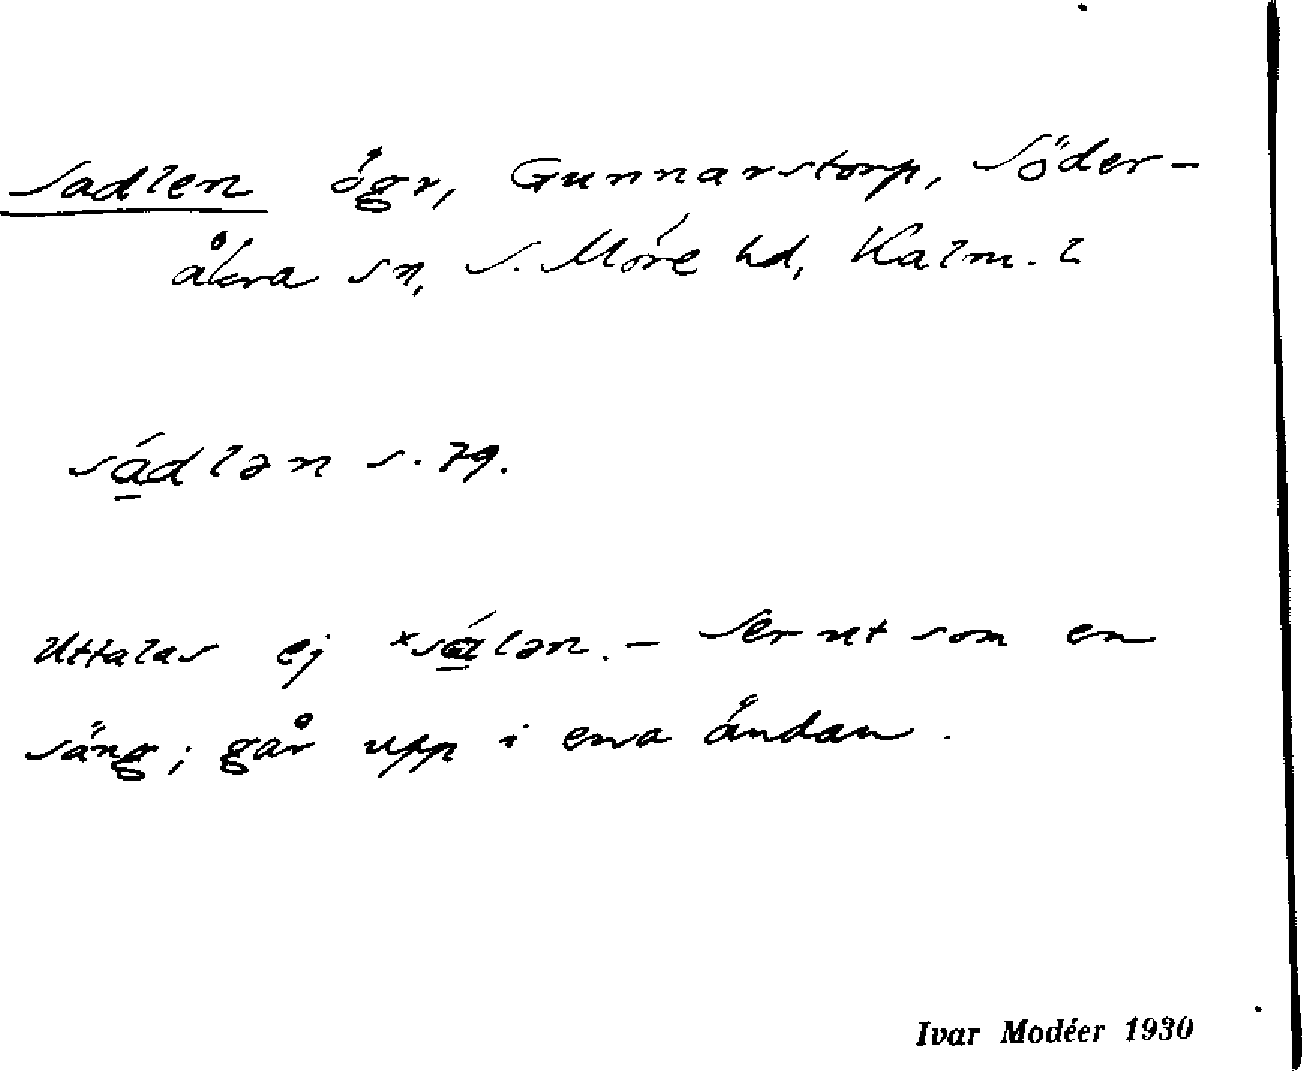 Sadlen ögr, Gunnarstorp, Söder-
åkra sn, S. Möre hd, Kalm. l
sádlən s. 79.
Uttalas ej *sálən. – Ser ut som en
säng; går upp i ena ändan.
Ivar Modéer 1930